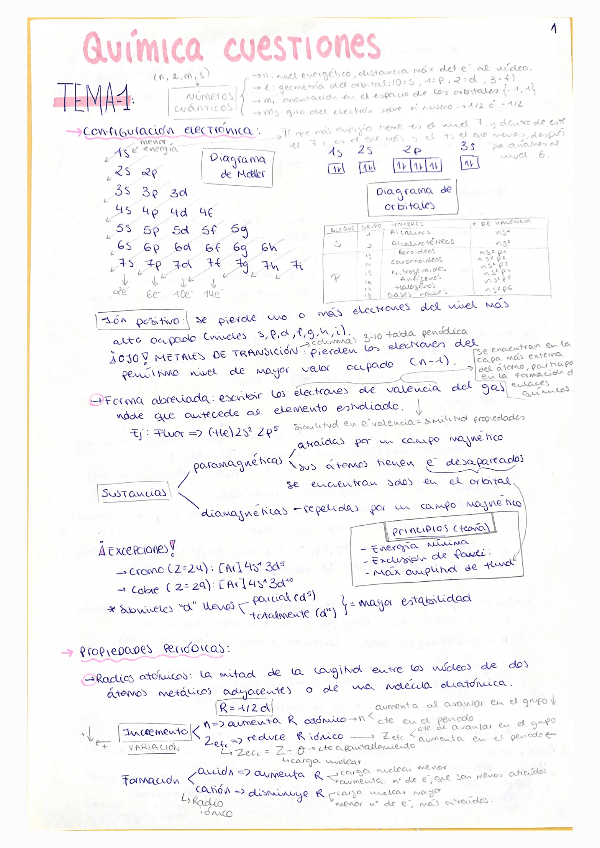 1
Química cuestiones
TEMA-1:
(n, l, m, s)
Números cuánticos
→ n: nivel energético, distancia máx del e⁻ al núcleo.
→ l: geometría del orbital: (0=s, 1=p, 2=d, 3=f)
→ m: orientación en el espacio de los orbitales {-1, 1}
→ ms: giro del electrón sobre sí mismo: +1/2 ó -1/2
→ Configuración electrónica:
el que más energía tiene es el nivel 7 y dentro de este
menor energía
1s
2s 2p
3s 3p 3d
4s 4p 4d 4f
5s 5p 5d 5f 5g
6s 6p 6d 6f 6g 6h
7s 7p 7d 7f 7g 7h 7i
2e⁻ 6e⁻ 10e⁻ 14e⁻
Diagrama de Moeller
1s 2s 2p 3s
nivel 6.
Diagrama de orbitales
BLOQUE GRUPO NOMBRES E⁻ DE VALENCIA
s 1 Alcalinos ns¹
2 Alcalinotérreos ns²
p 13 Boroideos ns²p¹
14 Carbonoideos ns²p²
15 Nitrogenoideos ns²p³
16 Anfígenos ns²p⁴
17 Halógenos ns²p⁵
18 Gases nobles ns²p⁶
Ión positivo: se pierde uno o más electrones del nivel más
alto ocupado (niveles s, p, d, f, g, h, i).
→ columnas 3-10 tabla periódica
¡OJO! METALES DE TRANSICIÓN: pierden los electrones del
penúltimo nivel de mayor valor ocupado (n-1).
Se encuentran en la
capa más externa
del átomo, participa
en la formación de
enlaces
químicos
→ Forma abreviada: escribir los electrones de valencia del gas
noble que antecede al elemento estudiado.
Ej: Flúor => (He)2s² 2p⁵
similitud en e⁻ valencia = similitud propiedades
Sustancias
paramagnéticas
atraídas por un campo magnético
sus átomos tienen e⁻ desapareados
se encuentran solos en el orbital
diamagnéticas - repelidas por un campo magnético
PRINCIPIOS (teoría)
- Energía mínima
- Exclusión de Pauli
- Máx amplitud de Hund
¡Excepciones!
→ Cromo (Z=24): [Ar] 4s¹ 3d⁵
→ Cobre (Z=29): [Ar] 4s¹ 3d¹⁰
* Subniveles "d" llenos
parcial (d⁵)
totalmente (d¹⁰)
} = mayor estabilidad
→ Propiedades Periódicas:
→ Radios atómicos: la mitad de la longitud entre los núcleos de dos
átomos metálicos adyacentes o de una molécula diatómica.
R = 1/2 d
Incremento
VARIACIÓN
n => aumenta R atómico → n
aumenta al avanzar en el grupo ↓
cte en el periodo
Zefc => reduce R iónico → Zefc
cte al avanzar en el grupo
aumenta en el periodo ←
Zefc = Z - σ → cte apantallamiento
carga nuclear
Formación
anión => aumenta R
carga nuclear menor
aumenta nº de e⁻, que son menos atraídos
catión => disminuye R
carga nuclear mayor
menor nº de e⁻, más atraídos.
Radio iónico